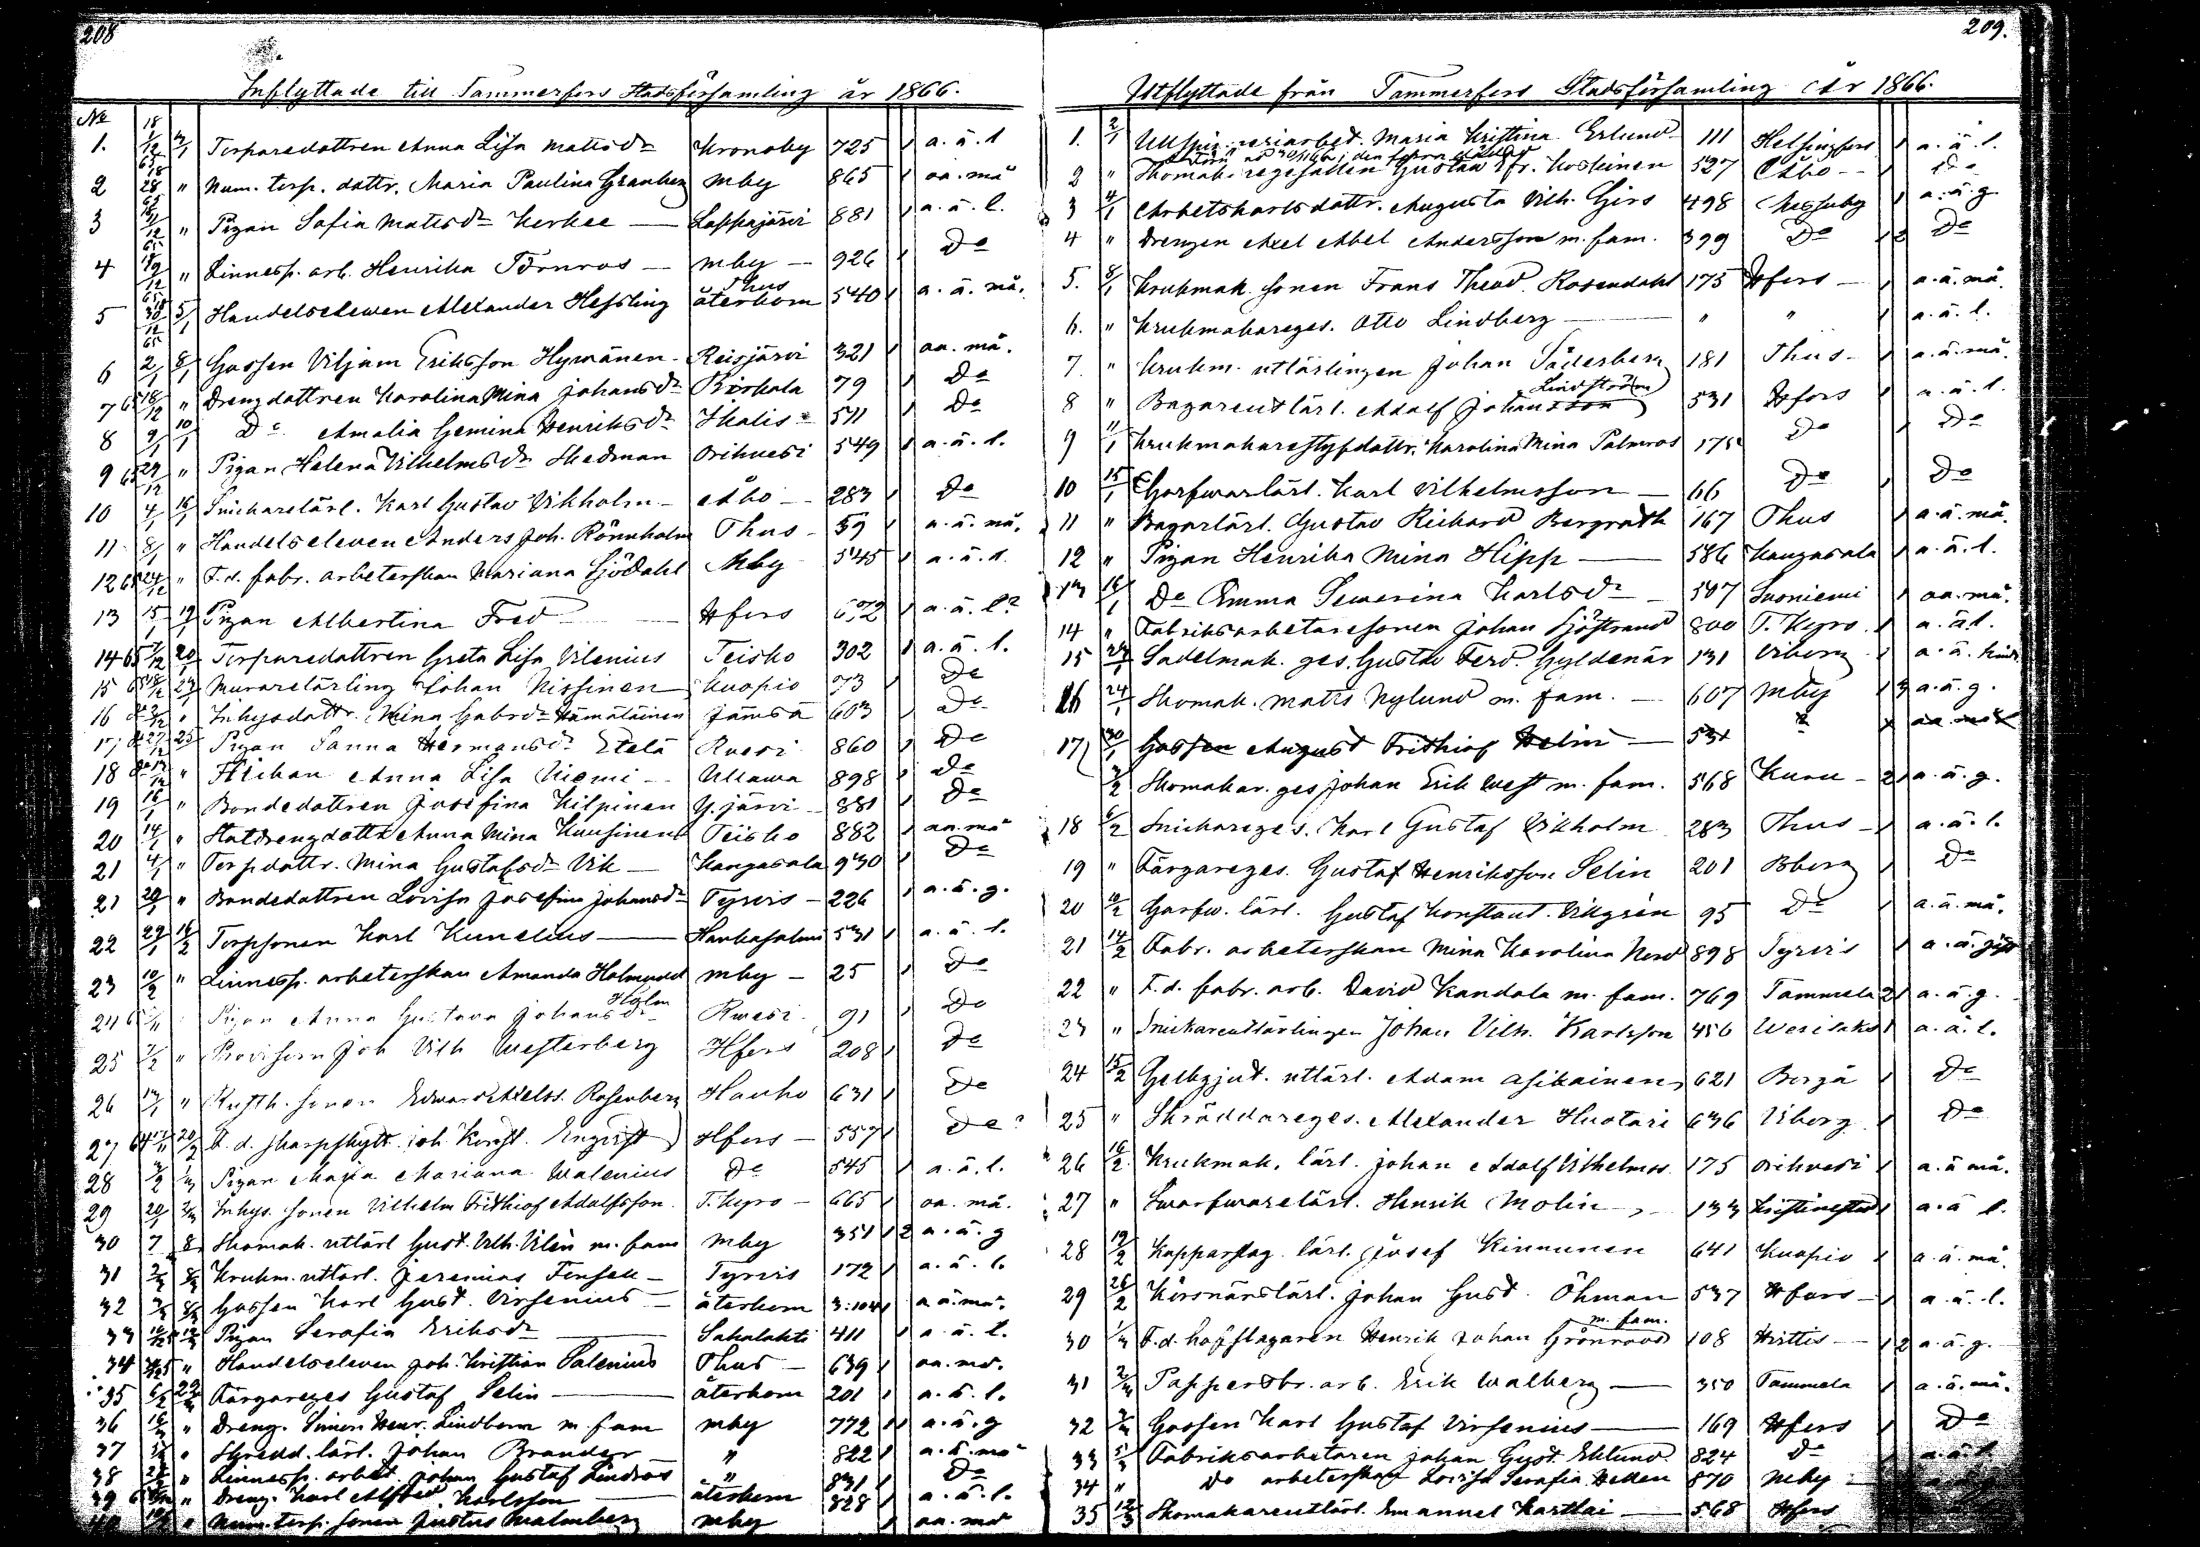 208
Inflyttade till Tammerfors Stadsförsamling år 1866.
No
1. Torparedottren Anna Lisa Matsdr Kronoby 725 1 a.ä.l
2 " Num. torp. dottr. Maria Paulina Granberg Mby 865 1 oa. må
3 " Pigan Sofia Matsdr Kerkee — Lappajärvi 881 1 a.ä.l.
4 " Linnesp. arb. Henrika Törnroos — Mby — 926 1 Do
Thus
5 Handelseleven Alexander Hessling återkom 540 1 a.ä.må.
6 2/1 8/1 Gossen Viljam Eriksson Hyvänen Reisjärvi 321 1 oa. må.
7 65 18/12 " Drengdottren Karolina Mina Johansdr Birkala 79 1 Do
8 9/1 10/1 Do Amalia Gemina Henriksdr Ikalis 511 1 Do
9 65 29/12 " Pigan Helena Vilhelmsdr Hedman Orihvesi 549 1 a.ä.l.
10 4/1 16/1 Snickarelärl. Karl Gustav Vikholm — Åbo — 283 1 Do
11 8/1 " Handelseleven Anders Joh. Rönnholm Thus — 59 1 a.ä.må.
12 65 24/12 " F.d. fabr. arbeterskan Mariana Sjödahl Mby 545 1 a.ä.l.
13 15/1 19/1 Pigan Albertina Fred — Hfors 1 a.ä.l?
14 65 20/1 Torparedottren Greta Lisa Vilenius Teisko 302 1 a.ä.l.
15 Murarelärling Johan Nissinen Kuopio 73 1 Do
16 " Inhysdottr. Mina Gabrdr Hämäläinen Jämsä 603 1 Do
17 Pigan Sanna Hermansdr Etelä Ruovesi 860 1 Do
18 " Anna Lisa Niemi — Ullawa 898 1 Do
19 " Bondedottren Josefina Kilpinen Y. järvi — 881 1 Do
20 14/1 " Statdrengdottr Anna Mina Kuusinen Teisko 882 1 oa. må
21 4/1 " Torpdottr. Mina Gustafsdr Vik — Kangasala 930 1 Do
21 20/1 " Bondedottren Lovisa Josefina Johansdr Tyrvis — 226 1 a.ä.g.
22 29/1 Torpsonen Karl Kunelius — Hankasalmi 531 1 a.ä.l.
23 10/2 " Linnesp. arbeterskan Amanda Holmudd Mby — 25 1 Do
Holm
24 Pigan Anna Gustava Johansdr 91 1 Do
25 " Provisorn Joh Vilh Westerberg Hfors 208 1 Do
26 " Rusth. sonen Edward Axelss. Rosenberg Hauho 631 1 Do
27 F.d. skarpskytt. Joh Konst. Engvist Hfors — 557 1 Do?
28 Pigan Maja Mariana Walenius Do 545 1 a.ä.l.
29 Inhys. sonen Vilhelm Frithiof Adolfsson. T. Kyro — 665 1 oa. må.
30 Skomak. utlärl Gust. Vilh. Vilén m. fam Mby 351 1 2 a.ä.g
31 Krukm. utlärl. Jeremias — Tyrvis 172 1 a.ä.l.
32 Gossen Karl Gust. Virsenius — återkom 3:104 1 a.ä.må.
33 Pigan Serafia Eriksdr — Sahalahti 411 1 a.ä.l.
34 " Handelseleven Joh. Kristian Salenius Thus — 639 1 oa. må.
35 Färgareges Gustaf Selin — återkom 201 1 a.ä.l.
36 " Dreng. Simon Henr. Lindbom m. fam Mby 772 a.ä.g
37 " lärl. Johan Brander " 822 1 a.ä.må
38 " Linnesp. arbet. Johan Gustaf Lindroos " 831 Do
39 " Dreng. Karl Alfred Karlsson — återkom 828 a.ä.l.
40 " Num. torp. sonen Justus Malmberg Mby 1 oa. må
209.
Utflyttade från Tammerfors Stadsförsamling år 1866.
1. 2/1 Maria Kristina Erlund 111 Helsingfors 1 a.ä.l.
2 " Skomakaregesällen Gustav Fr. Koskinen 527 Åbo — 1 Do
3 4/1 Arbetskarlsdottr. Augusta Vilh. Girs 498 Messuby 1 a.ä.g
4 " Drengen Axel Abel Andersson m. fam. 399 Do 1 2 Do
5. 8/1 Krukmak. sonen Frans Theod. Rosendahl 175 Hfors — 1 a.ä.må.
6. " Krukmakareges. Otto Lindberg — " " 1 a.ä.l.
7. " Krukm. utlärlingen Johan Söderberg 181 Thus — 1 a.ä.må.
Lindström
8 " Bagareutlärl. Adolf Johansson 531 Hfors 1 a.ä.l.
9 11/1 Krukmakarestyfdottr. Karolina Mina Palmroos 175 Do 1 Do
10 15/1 Garfvarlärl. Karl Vilhelmsson — 66 Do 1 Do
11 " Bagarlärl. Gustav Richard Bergroth 167 Thus 1 a.ä.må.
12 " Pigan Henrika Mina Hipp — 586 Kangasala 1 a.ä.l.
13 16/1 Do Emma Sewerina Karlsdr — 507 Suoniemi 1 oa. må.
14 " Fabriksarbetaresonen Johan Sjöstrand 800 T. Kyro. 1 a.ä.l.
15 Sadelmak. ges. Gustav Ferd. Gyldenär 131 Viborg 1 a.ä.
16 24/1 Skomak. Matts Nylund m. fam. — 607 Mby 1 3 a.ä.g.
17 30/1 Gossen August Frithiof Helin — 531
Skomakar. ges Johan Erik West m. fam. 568 Kuru — 2 1 a.ä.g.
18 6/2 Snickareges. Karl Gustaf Vikholm 283 Thus — 1 a.ä.l.
19 " Färgareges. Gustaf Henriksson Selin 201 Bborg 1 Do
20 Garfv. lärl. Gustaf Konstant. Vikgrén 95 Do 1 a.ä.må.
21 14/2 Fabr. arbeterskan Mina Karolina Nord 898 Tyrvis 1 a.ä.
22 " F.d. fabr. arb. David Kandola m. fam. 769 Tammela 2 1 a.ä.g.
23 " Snickareutlärlingen Johan Vilh. Karlsson 456 Wesilaks 1 a.ä.l.
24 15/2 Gelbgjut. utlärl. Adam Asikainen 621 Borgå 1 Do
25 " Skräddareges. Alexander Huotari 636 Viborg 1 Do
26 16/2 Krukmak. lärl. Johan Adolf Vilhelmss. 175 Orihvesi 1 a.ä må.
27 " Svarfvarelärl. Henrik Molin — 133 Kristinestad 1 a.ä l.
28 19/2 Kopparslag. lärl. Josef Kinnunen 641 Kuopio 1 a.ä.må.
29 26/2 Körsnärslärl. Johan Gust. Öhman 537 Hfors — 1 a.ä.l.
m. fam.
30 1/3 F.d. hofslagaren Henrik Johan Grönroos 108 Hvittis — 1 2 a.ä.g.
31 2/3 Pappersbr. arb. Erik Walberg — 350 Tammela 1 a.ä.må.
32 Gossen Karl Gustaf Virsenius — 169 Hfors 1 Do
33 5/3 Fabriksarbetaren Johan Gust. Eklund 824 Do 1 a.ä.l.
34 " Do arbeterskan Lovisa Serafia Heken 870 Mby
35 12/3 Skomakareutlärl. Emanuel Karttai — 568 Hfors